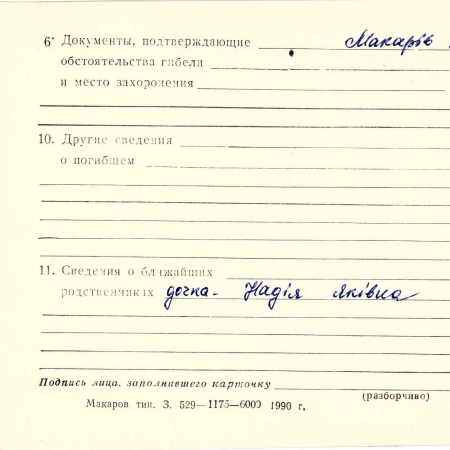 6· Документы, подтверждающие Макарів
обстоятельства гибели
и место захоронения
10. Другие сведения
о погибшем
11. Сведения о ближайших
родственниках дочка - Надія Яківна
Подпись лица, заполнившего карточку
(разборчиво)
Макаров тип. З. 529—1175—6000 1990 г.